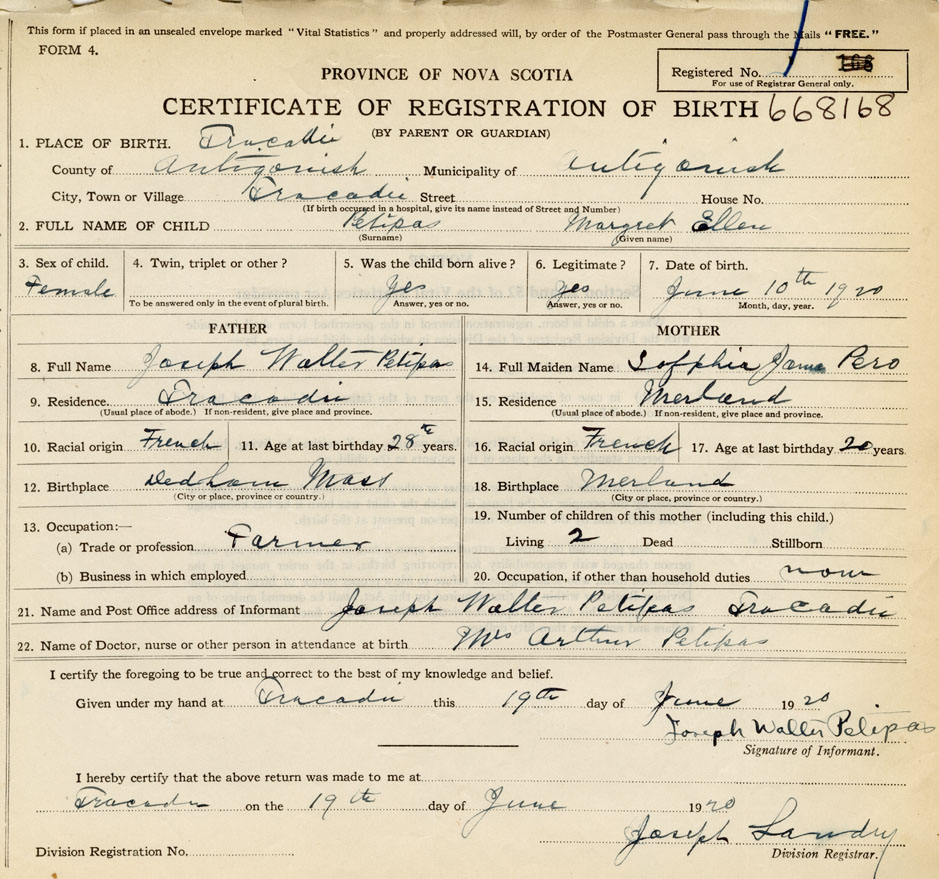 This form if placed in an unsealed envelope marked "Vital Statistics" and properly addressed will, by order of the Postmaster General pass through the Mails "FREE."
FORM 4.
PROVINCE OF NOVA SCOTIA
Registered No.
For use of Registrar General only.
CERTIFICATE OF REGISTRATION OF BIRTH 668168
(BY PARENT OR GUARDIAN)
1. PLACE OF BIRTH. Tracadie
County of Antigonish Municipality of Antigonish
City, Town or Village Tracadie Street House No.
(If birth occurred in a hospital, give its name instead of Street and Number)
2. FULL NAME OF CHILD Petipas Margret Ellen
(Surname) (Given name)
3. Sex of child. 4. Twin, triplet or other? 5. Was the child born alive? 6. Legitimate? 7. Date of birth.
Female Yes Yes June 10th 1920
To be answered only in the event of plural birth. Answer, yes or no. Answer, yes or no. Month, day, year.
FATHER MOTHER
8. Full Name Joseph Walter Petipas 14. Full Maiden Name Sofphia Jane Pero
9. Residence. Tracadie 15. Residence Merland
(Usual place of abode.) If non-resident, give place and province. (Usual place of abode.) If non-resident, give place and province.
10. Racial origin French 11. Age at last birthday 28 years. 16. Racial origin French 17. Age at last birthday 20 years.
12. Birthplace Dedham Mass 18. Birthplace Merland
(City or place, province or country.) (City or place, province or country.)
13. Occupation:— 19. Number of children of this mother (including this child.)
(a) Trade or profession Farmer Living 2 Dead Stillborn
(b) Business in which employed 20. Occupation, if other than household duties
21. Name and Post Office address of Informant Joseph Walter Petipas Tracadie
22. Name of Doctor, nurse or other person in attendance at birth Mrs Arthur Petipas
I certify the foregoing to be true and correct to the best of my knowledge and belief.
Given under my hand at Tracadie this 19th day of June 1920
Joseph Walter Petipas
Signature of Informant.
I hereby certify that the above return was made to me at
Tracadie on the 19th day of June 1920
Joseph Landry
Division Registrar.
Division Registration No.